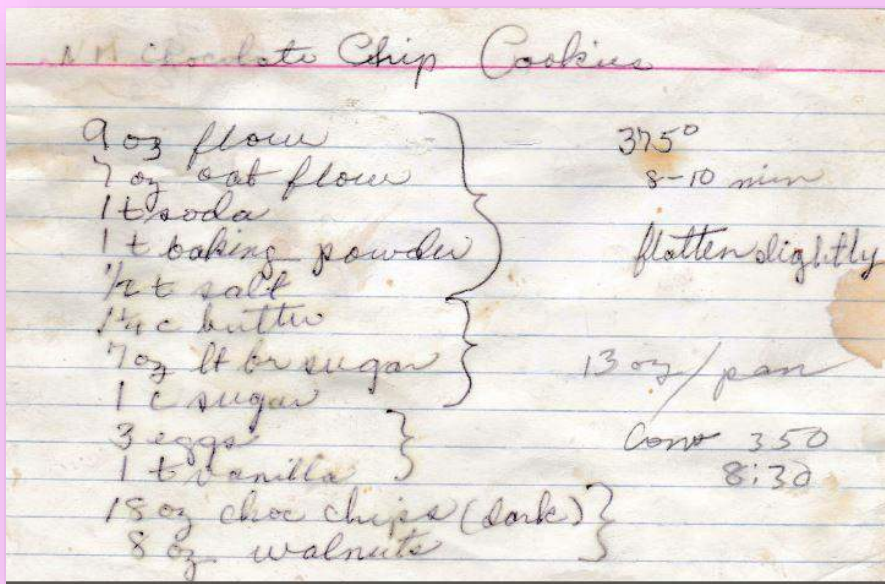 NM Chocolate Chip Cookies
9 oz flour
7 oz oat flour
1 t soda
1 t baking powder
1/2 t salt
1 1/4 c butter
7 oz lt br sugar
1 c sugar
3 eggs
1 t vanilla
18 oz choc chips (dark)
8 oz walnuts
375°
8-10 min
flatten slightly
13 oz/pan
Conv 350
8:30